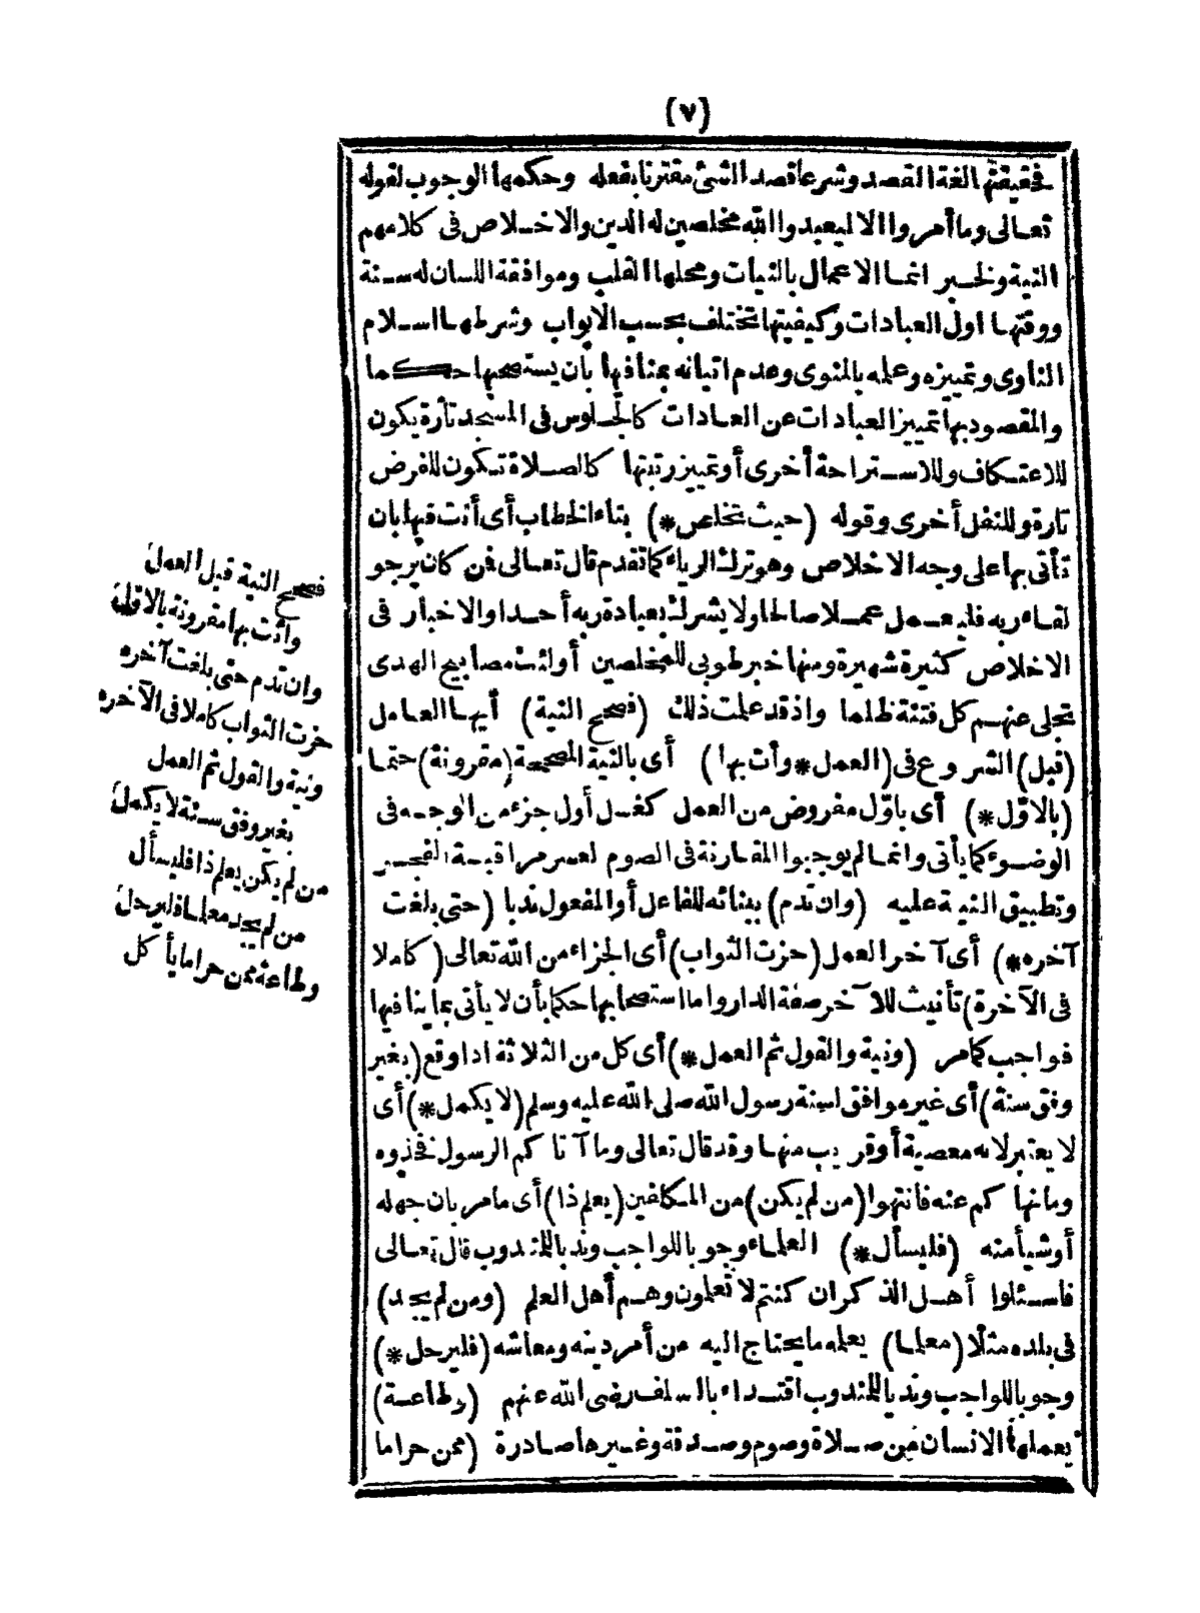 (٧)
فحقيقتها لغة القصد وشرعا قصد الشئ مقترنا بفعله وحكمها الوجوب لقوله
تعالى وما أمروا الا ليعبدوا الله مخلصين له الدين والاخلاص فى كلامهم
النية ولخبر انما الاعمال بالنيات ومحلها القلب وموافقة اللسان له سنة
ووقتها اول العبادات وكيفيتها تختلف بحسب الابواب وشرطها اسلام
الناوى وتمييزه وعلمه بالمنوى وعدم اتيانه بمنافيها بأن يستصحبها حكما
والمقصود بها تمييز العبادات عن العادات كالجلوس فى المسجد تارة يكون
للاعتكاف وللاستراحة أخرى أو تمييز رتبتها كالصلاة تكون للفرض
تارة وللنفل أخرى وقوله (حيث تخلص*) بتاء الخطاب أى أنت فيها بان
تأتى بها على وجه الاخلاص وهو ترك الرياء كما تقدم قال تعالى فمن كان يرجو
لقاء ربه فليعمل عملا صالحا ولا يشرك بعبادة ربه أحدا والاخبار فى
الاخلاص كثيرة شهيرة ومنها خبر طوبى للمخلصين أولئك مصابيح الهدى
تجلى عنهم كل فتنة ظلما واذ قد علمت ذلك (فصحح النية) أيها العامل
(قبل) الشروع فى (العمل*وأت بها) أى بالنية المصححة (مقرونة) حتما
(بالاوّل*) أى باوّل مفروض من العمل كغسل أول جزء من الوجه فى
الوضوء كما يأتى وانما لم يوجبوا المقارنة فى الصوم لعسر مراقبة الفجر
وتطبيق النية عليه (وان تدم) ببنائه للفاعل أو المفعول ندبا (حتى بلغت
آخره*) أى آخر العمل (حزت الثواب) أى الجزاء من الله تعالى (كاملا
فى الآخرة) تأنيث للآخر صفة الدار واما استصحابها حكما بأن لا يأتى بما ينافيها
فواجب كما مر (ونية والقول ثم العمل*) أى كل من الثلاثة اذا وقع (بغير
وفق سنة) أى غير موافق لسنة رسول الله صلى الله عليه وسلم (لا يكمل*) أى
لا يعتبر لانه معصية أو قريب منها وقد قال تعالى وما آتاكم الرسول فخذوه
وما نهاكم عنه فانتهوا (من لم يكن) من المكلفين (يعلم ذا) أى ما مر بان جهله
أو شيأ منه (فليسأل*) العلماء وجوبا للواجب وندبا للمندوب قال تعالى
فاسئلوا أهل الذكر ان كنتم لا تعلمون وهم أهل العلم (ومن لم يجد)
فى بلده مثلا (معلما) يعلمه ما يحتاج اليه من أمر دينه ومعاشه (فليرحل*)
وجوبا للواجب وندبا للمندوب اقتداء بالسلف رضى الله عنهم (وطاعة)
يعملها الانسان من صلاة وصوم وصدقة وغيرها صادرة (ممن حراما
فصحح النية قبل العمل
وائت بها مقرونة بالاوّل
وان تدم حتى بلغت آخره
حزت الثواب كاملا فى الآخره
ونية والقول ثم العمل
بغير وفق سنة لا يكمل
من لم يكن يعلم ذا فليسأل
من لم يجد معلما فليرحل
وطاعة ممن حراما يأكل